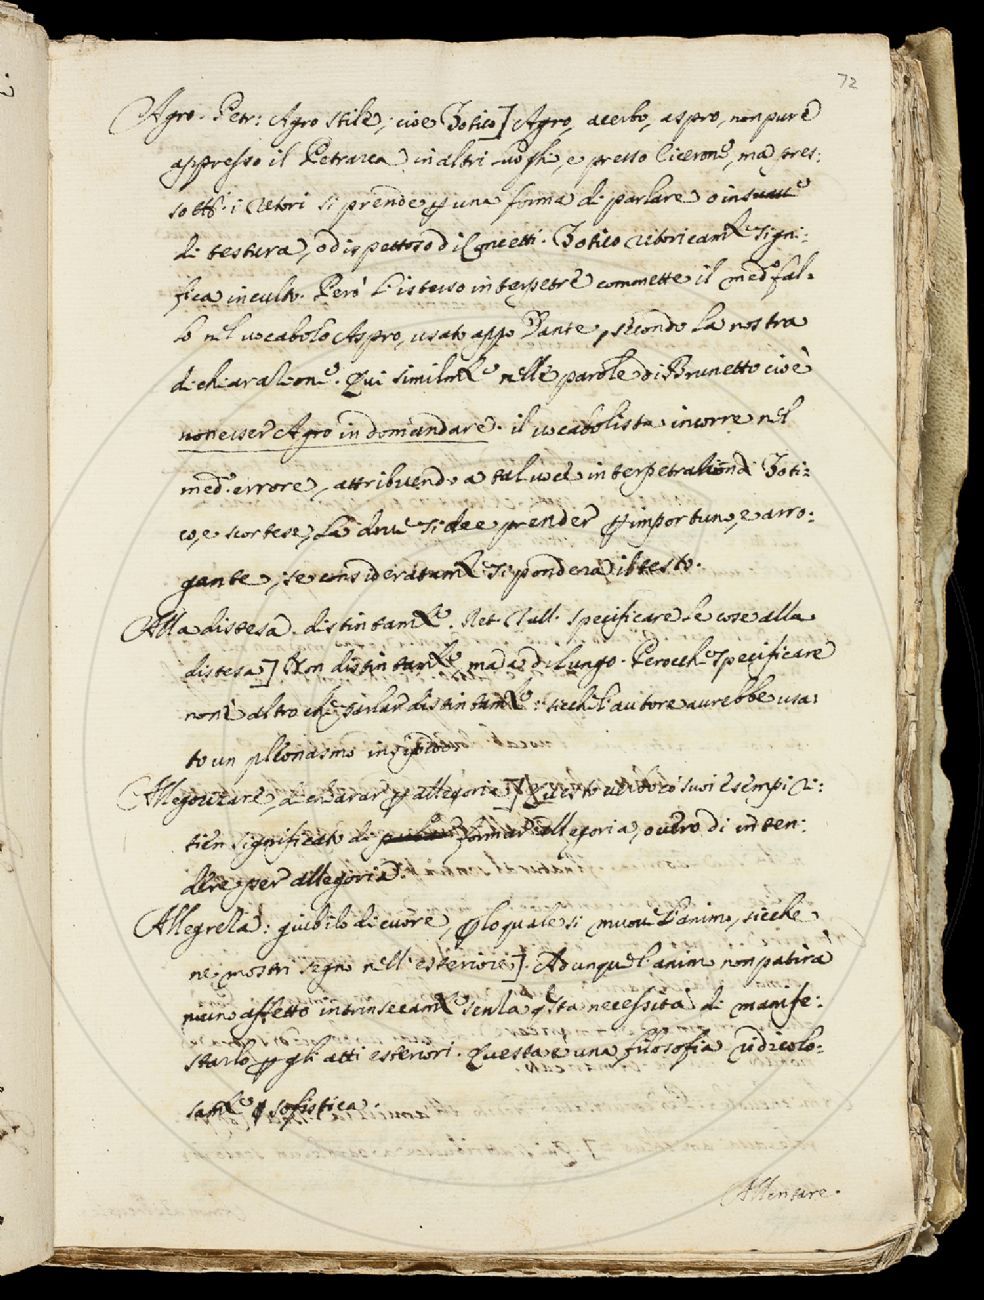 72
Agro. Petr: Agro stile, cioè Zotico] Agro, acerbo, aspro, non pure
appresso il Petrarca in altri luoghi, e presso Cicerone, ma pres:
so tt. i Retori si prende p una forma di parlare o insuaue
di testura, o dispettoso di Concetti. Zotico retoricam.te signi:
fica inculto. Però l'istesso interpetre commette il med.o fal:
lo nel vocabolo Aspro, usato appo Dante, secondo la nostra
dichiarazione. Qui similm.te nelle parole di Brunetto cioè
non esser Agro in domandare. il vocabolista incorre nel
med. errore, attribuendo a tal voce interpetrazion di Zoti:
co, e scortese, là doue si dee prender p importuno, e arro:
gante, se consideratam.te si pondera il testo.
Alla distesa. distintam.te. Ret. Tull. specificare le cose alla
distesa] Non distintam.te ma a di lungo. Perocchè specificare
non è altro che parlar distintam.te: sicchè l'autore aurebbe usa:
to un pleonasmo insipido.
Allegorizare, dichiarar p allegoria] Questo verbo co' suoi esempi ri:
tien significato di formar allegoria, ouero di inten:
dere per allegoria.
Allegrezza: giubilo di cuore, p lo quale si muoue l'animo, sicchè
ne mostri segno nell'esteriore]. Adunque l'animo non patirà
niun affetto intrinsecam.te senza q.sta necessità di manife:
starlo p gli atti esteriori. Questa è una filosofia ridicolo:
sam.te sofistica.
Allentare.